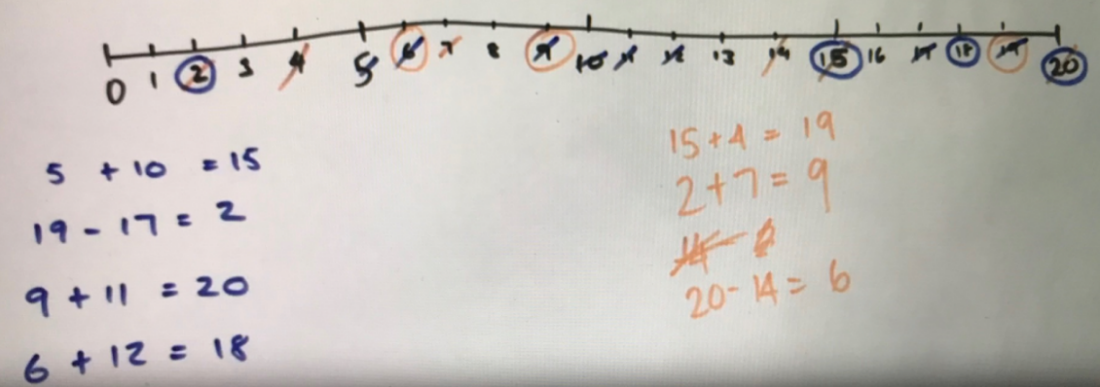 0 1 2 3 4 5 6 7 8 9 10 11 12 13 14 15 16 17 18 19 20
5 + 10 = 15
19 - 17 = 2
9 + 11 = 20
6 + 12 = 18
15 + 4 = 19
2 + 7 = 9
20 - 14 = 6